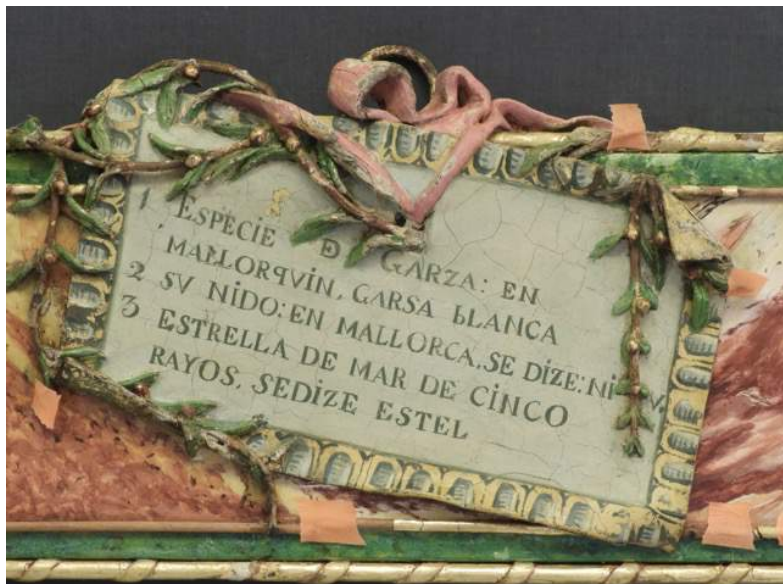 1 ESPECIE Đ GARZA: EN
MALLORQVIN, GARSA bLANCA
2 SV NIDO: EN MALLORCA, SE DIZE:
3 ESTRELLA DE MAR DE CINCO
RAYOS, SEDIZE ESTEL